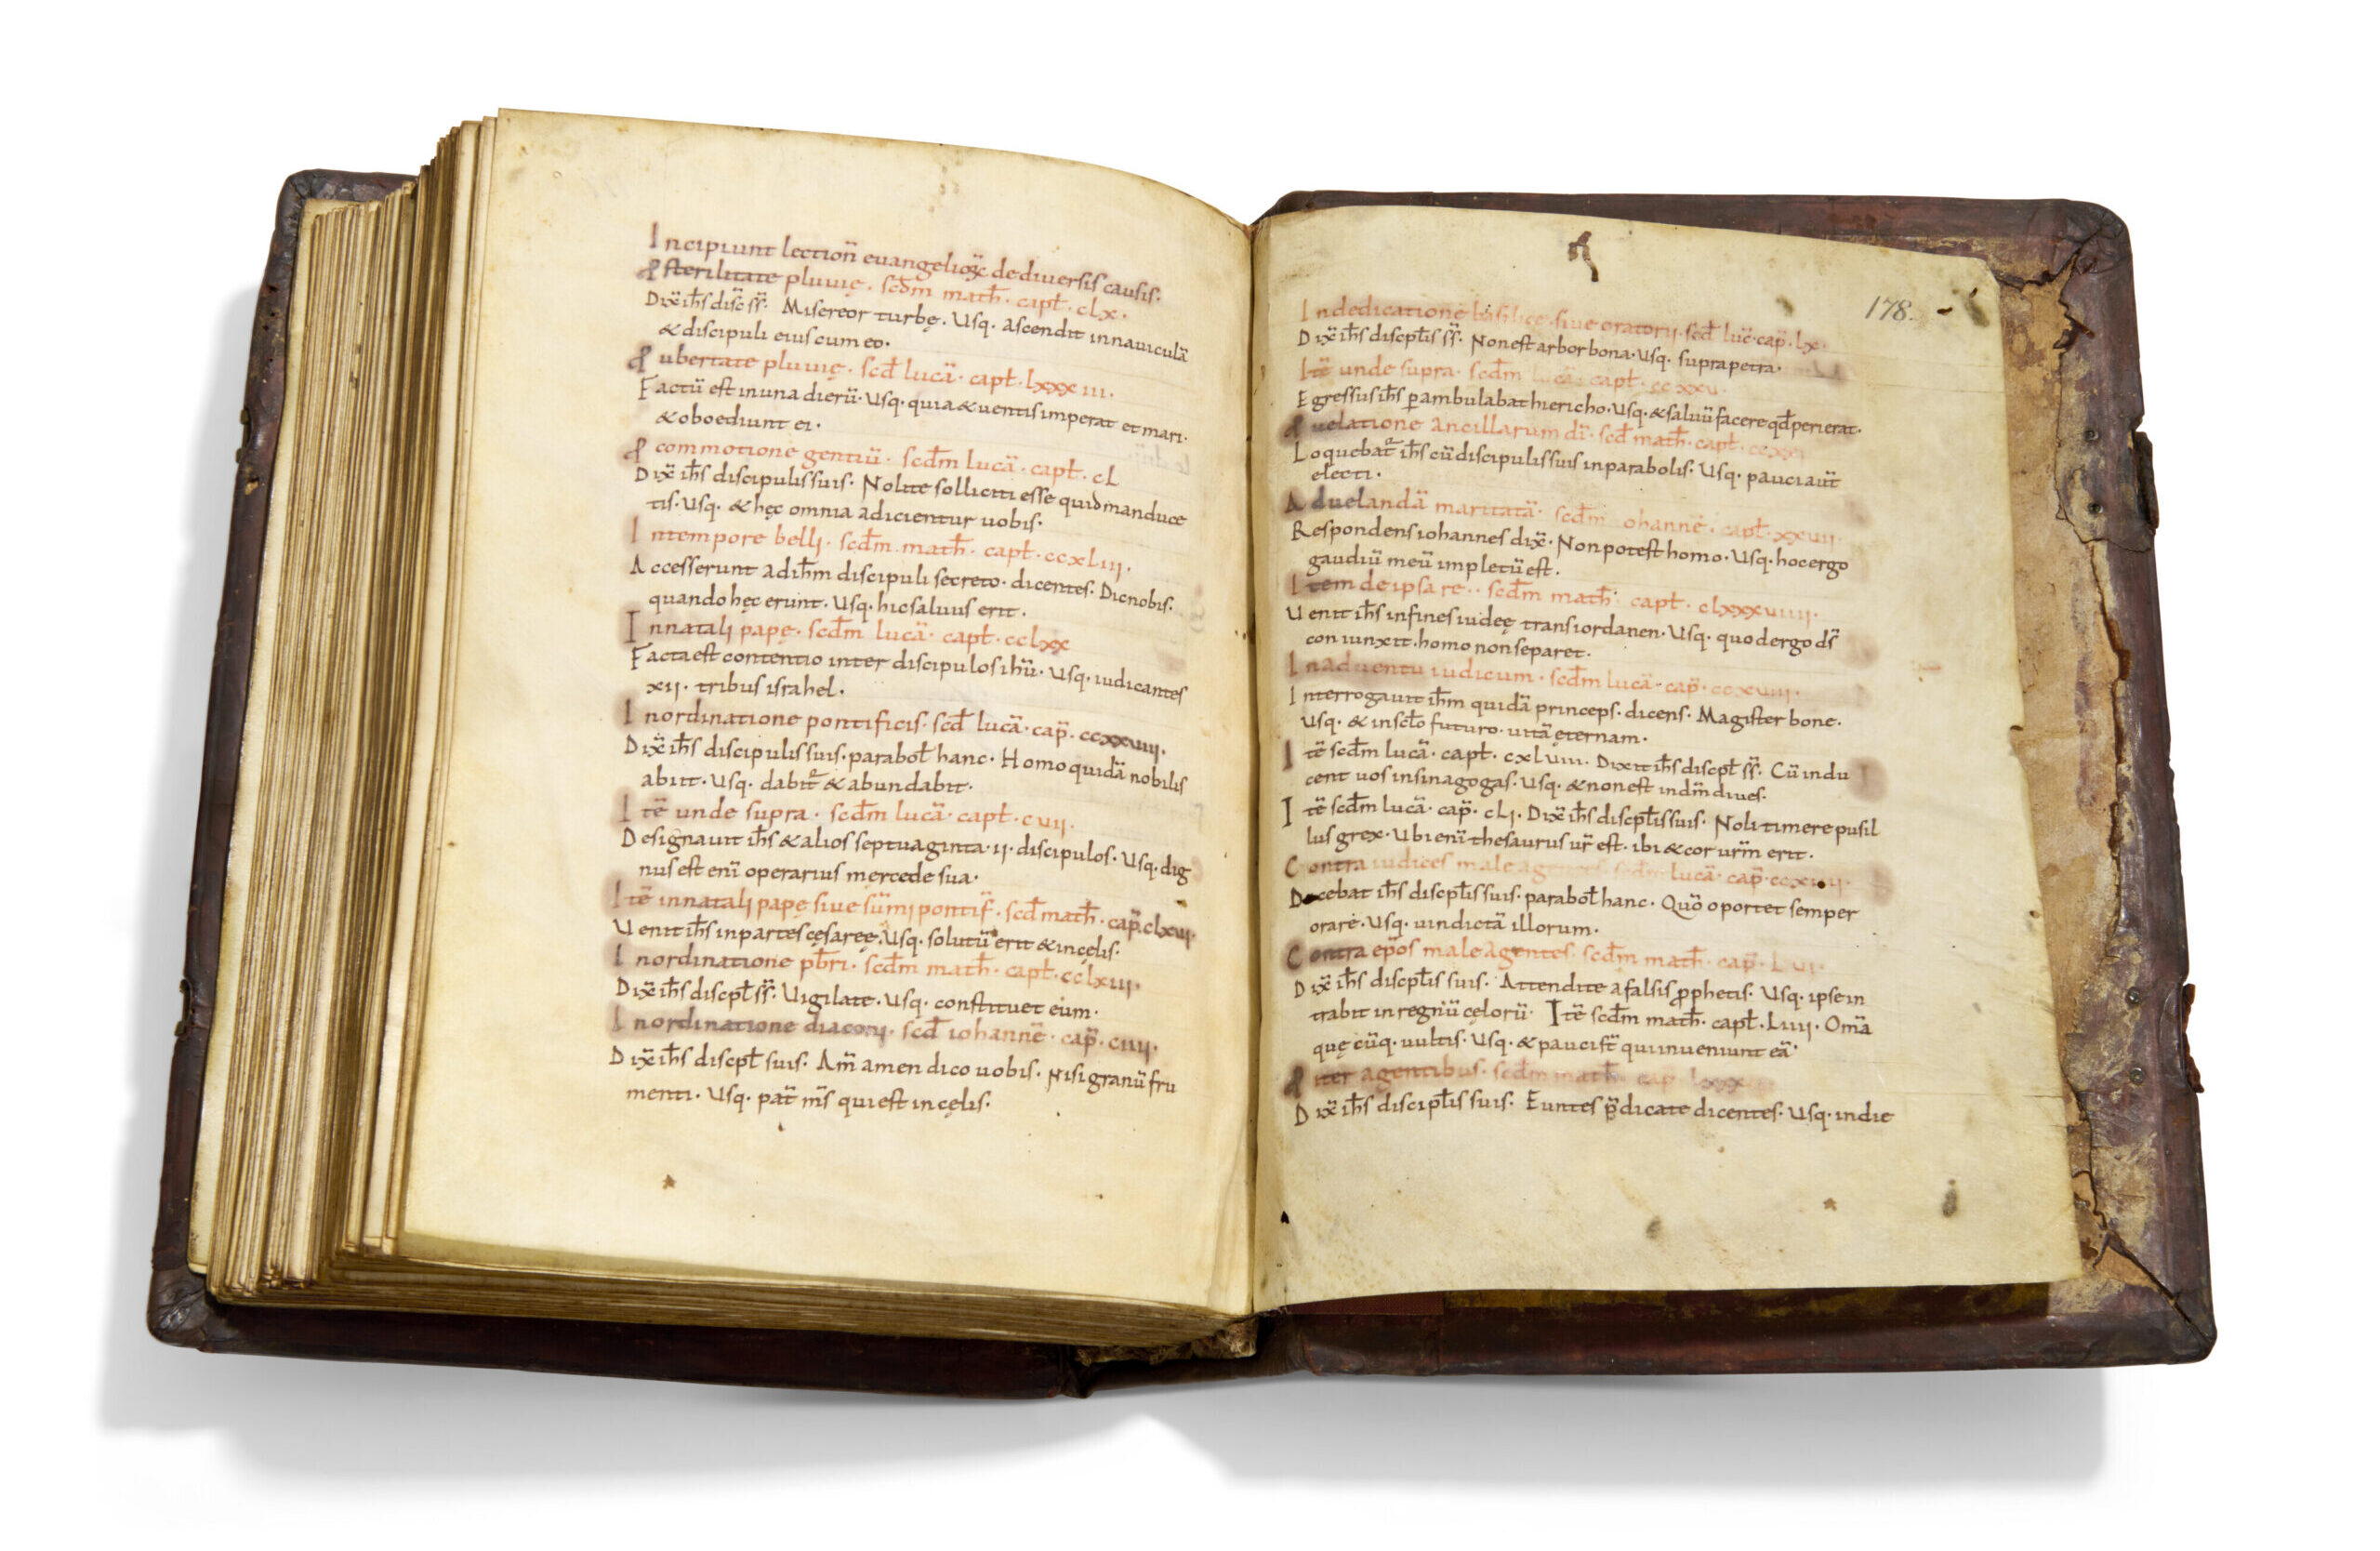 Incipiunt lection̄ euangelioꝝ dediuersis causis·
ꝓ sterilitate pluuię· scđm math̄· capt̄· clx·
Dix̄ ih̄s disc̄ ss̄· Misereor turbę· Usq· ascendit innauiculā
&discipuli eius cum eo·
ꝓ ubertate pluuię· scđ lucā· capt̄· lxxxiii·
Factū est inuna dierū· Usq· quia&uentis imperat et mari·
&oboediunt ei·
ꝓ commotione gentiū· scđm lucā· capt̄· cL
Dix̄ ih̄s discipulis suis· Nolite solliciti esse quid manduce
tis· Usq· &hęc omnia adicientur uobis·
Intempore belli· scđm math̄· capt̄· ccxLiii·
Accesserunt adih̄m discipuli secreto· dicentes· Dicnobis·
quando hęc erunt· Usq· hic saluus erit·
Innatali papę· scđm lucā· capt̄· cclxx
Facta est contentio inter discipulos ihū· Usq· iudicantes
xii· tribus israhel·
Inordinatione pontificis· scđ lucā· cap̄· ccxxuiii·
Dix̄ ih̄s discipulis suis· parabol̄ hanc· Homo quidā nobilis
abiit· Usq· dabit̄ &abundabit·
Itē unde supra· scđm lucā· capt̄· cuii·
Designauit ih̄s &alios septuaginta·ii·discipulos· Usq· dig
nus est enī operarius mercede sua·
Itē innatali papę siue sūmi pontif̄· scđ math̄· cap̄· clxui·
Uenit ih̄s inpartes cęsareę· Usq· solutū erit &incęlis·
Inordinatione pb̄ri· scđm math̄· capt̄· cclxiii·
Dix̄ ih̄s discpl̄ ss̄· Uigilate· Usq· constituet eum·
Inordinatione diaconi· scđ iohannē· cap̄· ciiii·
Dix̄ ih̄s discpl̄ suis· Am̄ amen dico uobis· Nisi granū fru
menti· Usq· pat̄ m̄s qui est incęlis·
178·
Indedicatione basilicę siue oratorii· scđ luc̄· cap̄· lx·
Dix̄ ih̄s discpl̄is ss̄· Non est arbor bona· Usq· suprapetra·
Itē unde supra· scđm lucā· capt̄· ccxxu·
Egressus ih̄s perambulabat hiericho· Usq· &saluū facere qđ perierat·
ꝓ uelatione ancillarum dī· scđ math̄· capt̄·
Loquebat̄ ih̄s cū discipulis suis inparabolis· Usq· pauci aūt
electi·
Aduelandā maritatā· scđm iohannē· capt̄· xxuii·
Respondens iohannes dix̄· Non potest homo· Usq· hoc ergo
gaudiū meū impletū est·
Item de ipsa re·· scđm math̄· capt̄· clxxxuiiii·
Uenit ih̄s infines iudeę trans iordanen· Usq· quod ergo d̄s
coniunxit· homo non separet·
Inaduentu iudicum· scđm lucā· cap̄· ccxuiii·
Interrogauit ih̄m quidā princeps· dicens· Magister bone·
Usq· &insc̄lo futuro· uitā ęternam·
Itē scđm lucā· capt̄· cxLuiii· Dixit ih̄s discpl̄ ss̄· Cū indu
cent uos insinagogas· Usq· &non est indm̄ diues·
Itē scđm lucā· cap̄· cLi· Dix̄ ih̄s discpl̄is suis· Noli timere pusil
lus grex· Ubi enī thesaurus ur̄ est· ibi &cor urm̄ erit·
Contra iudices male agentes scđm lucā· cap̄·
Docebat ih̄s discpl̄is suis· parabol̄ hanc· Quō oportet semper
orare· Usq· uindictā illorum·
Contra ep̄os male agentes· scđm math̄· cap̄· Lui·
Dix̄ ih̄s discpl̄is suis· Attendite a falsis ꝓphetis· Usq· ipse in
trabit in regnū cęlorū· Itē scđm math̄· capt̄· Liiii· Om̄a
quę cūq· uultis· Usq· &pauci st̄ qui inueniunt eā·
ꝓ iter agentibus· scđm math̄· cap̄·
Dix̄ ih̄s discipl̄is suis· Euntes p̄dicate dicentes· Usq· indie